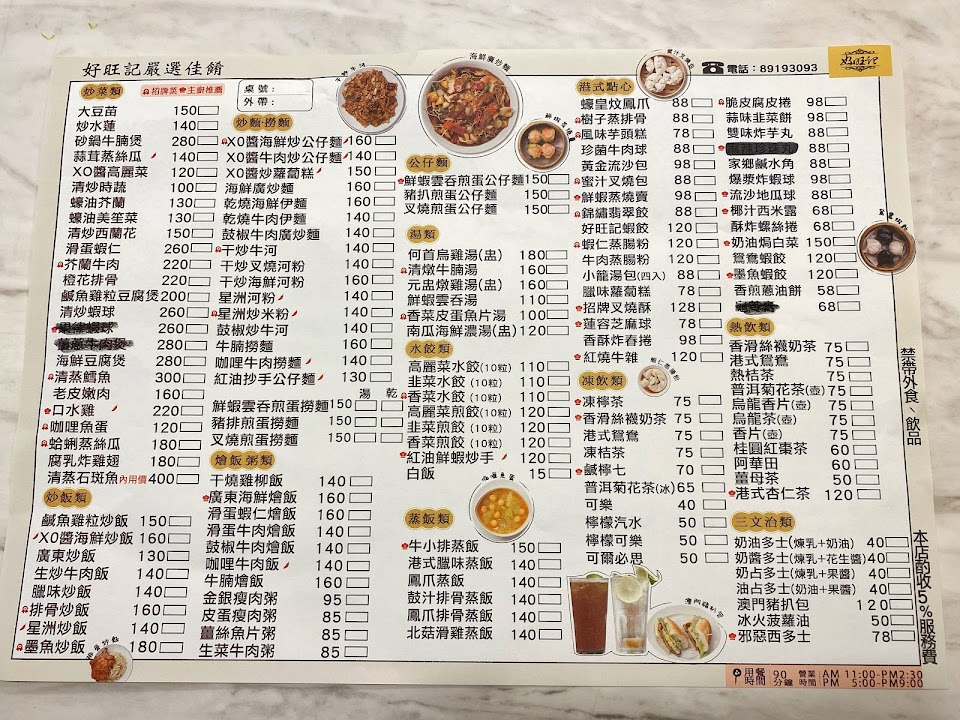 好旺記嚴選佳餚
炒菜類 招牌菜 主廚推薦
大豆苗 150
炒水蓮 140
砂鍋牛腩煲 280
蒜茸蒸絲瓜 140
XO醬高麗菜 120
清炒時蔬 100
蠔油芥蘭 130
蠔油美笙菜 130
清炒西蘭花 150
滑蛋蝦仁 260
芥蘭牛肉 220
橙花排骨 220
鹹魚雞粒豆腐煲 200
清炒蝦球 260
260
280
海鮮豆腐煲 280
清蒸鱈魚 300
老皮嫩肉 160
口水雞 220
咖哩魚蛋 120
蛤蜊蒸絲瓜 180
腐乳炸雞翅 180
清蒸石斑魚 內用價 400
炒飯類
鹹魚雞粒炒飯 150
XO醬海鮮炒飯 160
廣東炒飯 130
生炒牛肉飯 140
臘味炒飯 140
排骨炒飯 160
星洲炒飯 140
墨魚炒飯 180
桌號：
外帶：
炒麵·撈麵
XO醬海鮮炒公仔麵 160
XO醬牛肉炒公仔麵 140
XO醬炒蘿蔔糕 150
海鮮廣炒麵 160
乾燒海鮮伊麵 160
乾燒牛肉伊麵 140
鼓椒牛肉廣炒麵 140
干炒牛河 140
干炒叉燒河粉 140
干炒海鮮河粉 160
星洲河粉 140
星洲炒米粉 140
鼓椒炒牛河 140
牛腩撈麵 160
咖哩牛肉撈麵 140
紅油抄手公仔麵 130
湯 乾
鮮蝦雲吞煎蛋撈麵 150
豬排煎蛋撈麵 150
叉燒煎蛋撈麵 150
燴飯粥類
干燒雞柳飯 140
廣東海鮮燴飯 160
滑蛋蝦仁燴飯 160
滑蛋牛肉燴飯 140
鼓椒牛肉燴飯 140
咖哩牛肉飯 140
牛腩燴飯 160
金銀瘦肉粥 95
皮蛋瘦肉粥 85
薑絲魚片粥 85
生菜牛肉粥 85
干炒牛河
海鮮廣炒麵
公仔麵
鮮蝦雲吞煎蛋公仔麵 150
豬扒煎蛋公仔麵 150
叉燒煎蛋公仔麵 150
湯類
何首烏雞湯(盅) 180
清燉牛腩湯 160
元盅燉雞湯(盅) 160
鮮蝦雲吞湯 110
香菜皮蛋魚片湯 100
南瓜海鮮濃湯(盅) 120
水餃類
高麗菜水餃(10粒) 110
韭菜水餃(10粒) 110
香菜水餃(10粒) 110
高麗菜煎餃(10粒) 120
韭菜煎餃(10粒) 120
香菜煎餃(10粒) 120
紅油鮮蝦炒手 120
白飯 15
咖哩魚蛋
蒸飯類
牛小排蒸飯 150
港式臘味蒸飯 140
鳳爪蒸飯 140
鼓汁排骨蒸飯 140
鳳爪排骨蒸飯 140
北菇滑雞蒸飯 140
港式點心
蠔皇炆鳳爪 88
樹子蒸排骨 88
風味芋頭糕 78
珍菌牛肉球 88
黃金流沙包 98
蜜汁叉燒包 88
鮮蝦蒸燒賣 98
錦繡翡翠餃 88
好旺記蝦餃 98
蝦仁蒸腸粉 120
牛肉蒸腸粉 120
小龍湯包(四入) 88
臘味蘿蔔糕 78
招牌叉燒酥 128
蓮容芝麻球 78
香酥炸春捲 98
紅燒牛雜 120
凍飲類
凍檸茶 75
香滑絲襪奶茶 75
港式鴛鴦 75
凍桔茶 75
鹹檸七 70
普洱菊花茶(冰) 65
可樂 40
檸檬汽水 50
檸檬可樂 50
可爾必思 50
澳門豬扒包
電話：89193093
好旺記
脆皮腐皮捲 98
蒜味韭菜餅 98
雙味炸芋丸 88
88
家鄉鹹水角 88
爆漿炸蝦球 98
流沙地瓜球 88
椰汁西米露 68
酥炸螺絲捲 68
奶油焗白菜 150
鴛鴦蝦餃 120
墨魚蝦餃 120
香煎蔥油餅 58
68
熱飲類
香滑絲襪奶茶 75
港式鴛鴦 75
熱桔茶 75
普洱菊花茶(壺) 75
烏龍香片(壺) 75
烏龍茶(壺) 75
香片(壺) 75
桂圓紅棗茶 60
阿華田 60
薑母茶 50
港式杏仁茶 120
三文治類
奶油多士(煉乳+奶油) 40
奶醬多士(煉乳+花生醬) 40
奶占多士(煉乳+果醬) 40
油占多士(奶油+果醬) 40
澳門豬扒包 120
冰火菠蘿油 50
邪惡西多士 78
禁帶外食、飲品
本店酌收5%服務費
用餐時間 90分鐘 營業時間 AM 11:00-PM2:30
PM 5:00-PM9:00